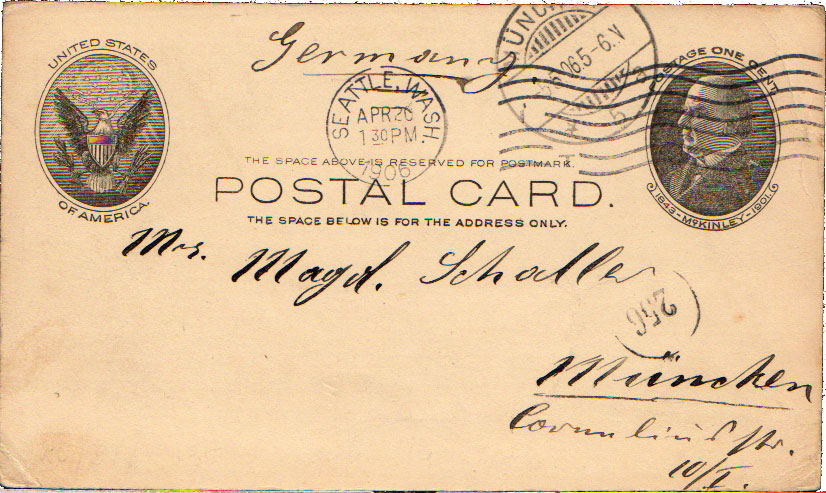 Germany
UNITED STATES
OF AMERICA.
SEATTLE, WASH.
APR 20
1 30 PM
1906
MÜNCH
5-6.N
POSTAGE ONE CENT
1843-McKINLEY-1901.
THE SPACE ABOVE IS RESERVED FOR POSTMARK.
POSTAL CARD.
THE SPACE BELOW IS FOR THE ADDRESS ONLY.
Mrs. Magd. Schaller
256
München
Corneliusstr.
10/I.